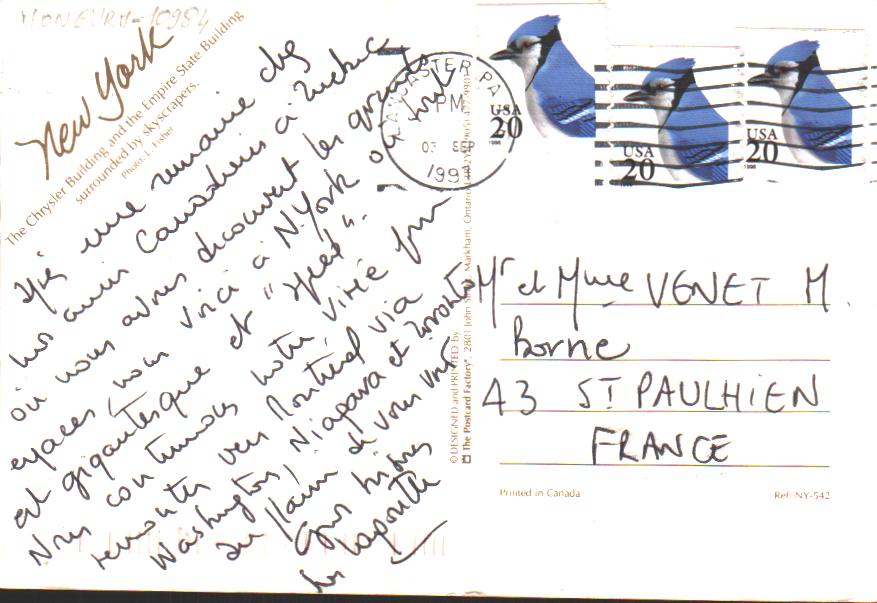 MON EURA-10984
New York
The Chrysler Building and the Empire State Building
surrounded by skyscrapers.
Photo: L. Fisher
une semaine chez
nos amis Canadiens à
où nous avons découvert les grands
espaces, nous voici à N.York où tout
est gigantesque et "speed".
Nous continuons notre virée pour
remonter vers Montréal via
Washington, Niagara et Toronto
au plaisir de vous voir
Gros bisous
les Laporte
©DESIGNED and PRINTED by
The Postcard Factory, 2801 John Street, Markham, Ontario
LANCASTER PA
PM
03 SEP
USA
20
1996
USA
20
1996
USA
20
1996
Mr et Mme VENET M.
Borne
43 ST PAULHIEN
FRANCE
Printed in Canada
Ref: NY-542